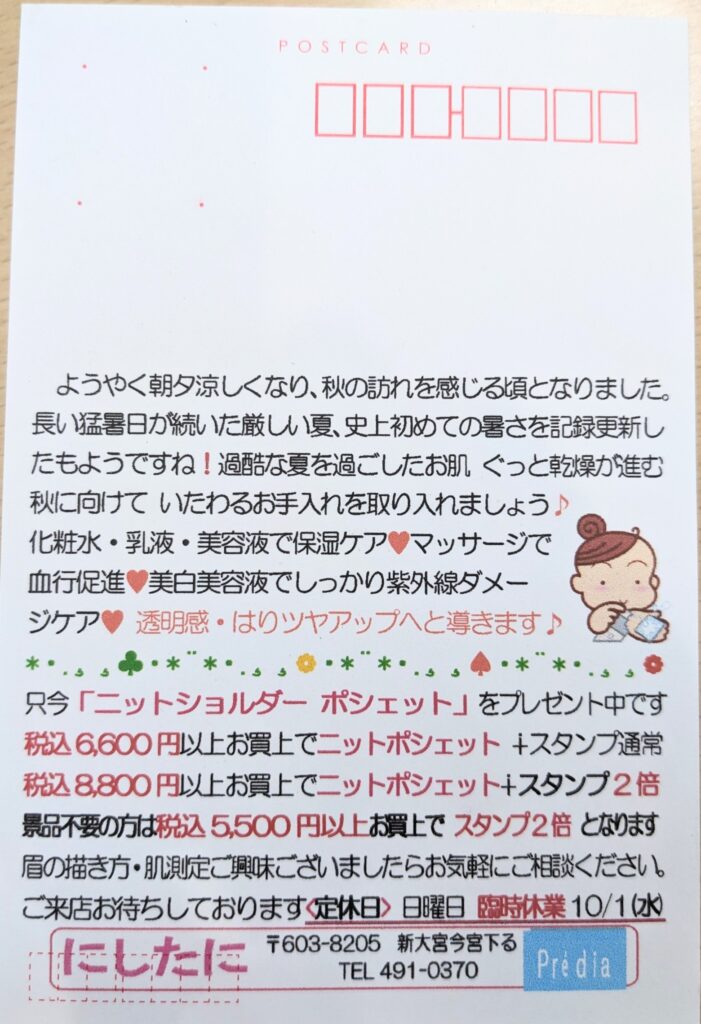 POSTCARD
ようやく朝夕涼しくなり、秋の訪れを感じる頃となりました。
長い猛暑日が続いた厳しい夏、史上初めての暑さを記録更新し
たもようですね！過酷な夏を過ごしたお肌 ぐっと乾燥が進む
秋に向けて いたわるお手入れを取り入れましょう♪
化粧水・乳液・美容液で保湿ケア♥マッサージで
血行促進♥美白美容液でしっかり紫外線ダメー
ジケア♥ 透明感・はりツヤアップへと導きます♪
只今「ニットショルダー ポシェット」をプレゼント中です
税込6,600円以上お買上でニットポシェット +スタンプ通常
税込8,800円以上お買上でニットポシェット+スタンプ2倍
景品不要の方は税込5,500円以上お買上で スタンプ2倍 となります
眉の描き方・肌測定ご興味ございましたらお気軽にご相談ください。
ご来店お待ちしております〈定休日〉 日曜日 臨時休業 10/1(水)
にしたに 〒603-8205 新大宮今宮下る
TEL 491-0370
Prédia